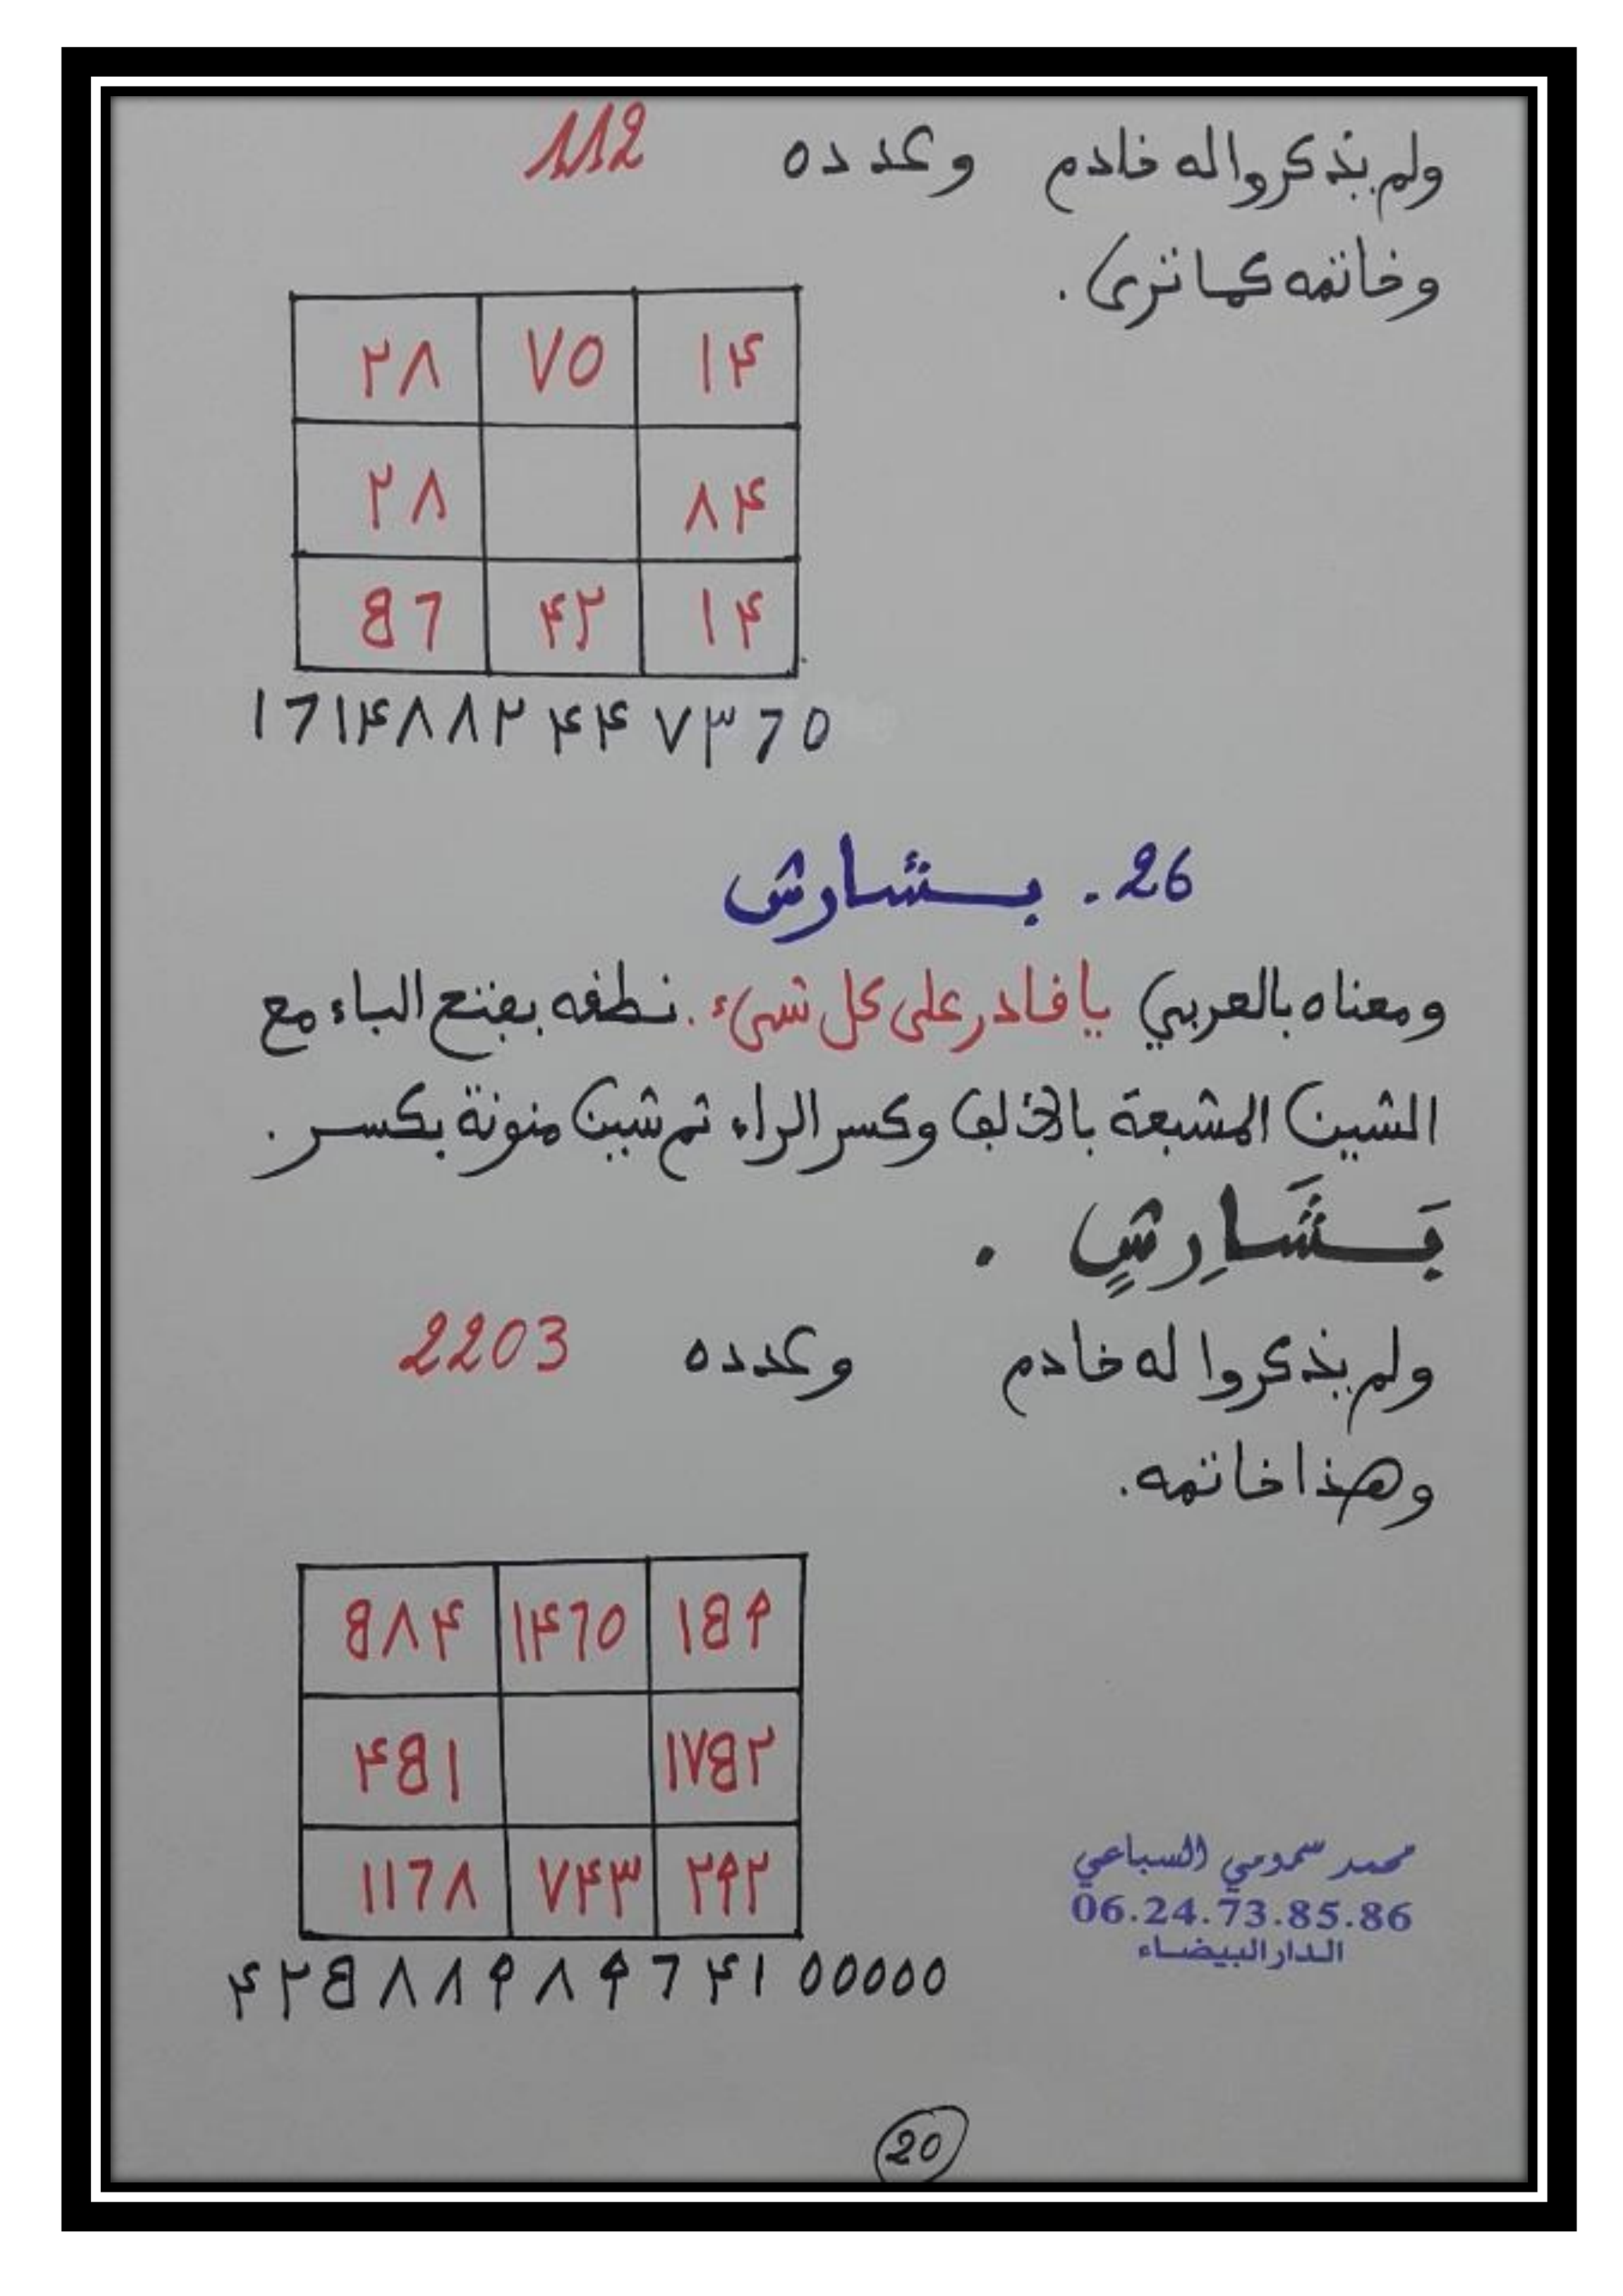 ولم يذكروا له خادم وعدده 112
وخاتمه كما ترى.
٢٨ ٧٥ ١٤
٢٨ ٨٤
B٦ ٤٢ ١٤
١٦١٤٨٨٢٤٤٧٣٦٥
26. بشارش
ومعناه بالعربي يا قادر على كل شيء. نطقه بفتح الباء مع
الشين المشبعة بالألف وكسر الراء ثم شين منونة بكسر.
بَشَارِشٍ .
ولم يذكروا له خادم وعدده 2203
وهذا خاتمه.
B٨٤ ١٤٦٥ ١B٩
٤B١ ١٧B٢
١١٦٨ ٧٤٣ ٢٩٢
٤٢B٨٨٩٨٩٦٤١٥٥٥٥٥
محمد سمومي السباعي
06.24.73.85.86
الدار البيضاء
20